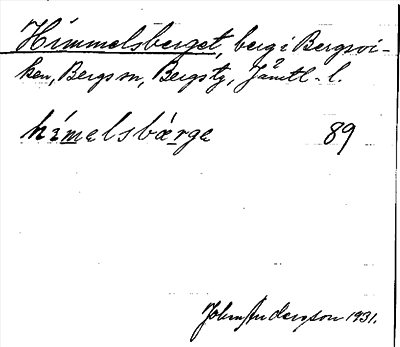 Himmelsberget, berg i Bergsvi-
ken, Bergs sn, Bergs tg, Jämtl. l.
hímelsbærge 89
John Anderson 1931.